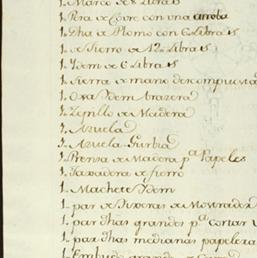 1. Marco de 8 Libras
1. Pesa de Cobre con una arroba
1. Dha de Plomo con 6 Libras
1. de fierro de 12 Libras
1. Ydem de 6 Libras
1. Sierra de mano descompuesta
1. Ydem brazera
1. Zepillo de Madera
1. Azuela
1. Azuela Gurbia
1. Prensa de Madera pa Papeles
1. de fierro
1. Machete Ydem
1. par de tixeras de Mostrador
1. par dhas grandes pa Cortar
1. par dhas medianas papeleras
1. Embudo grande de